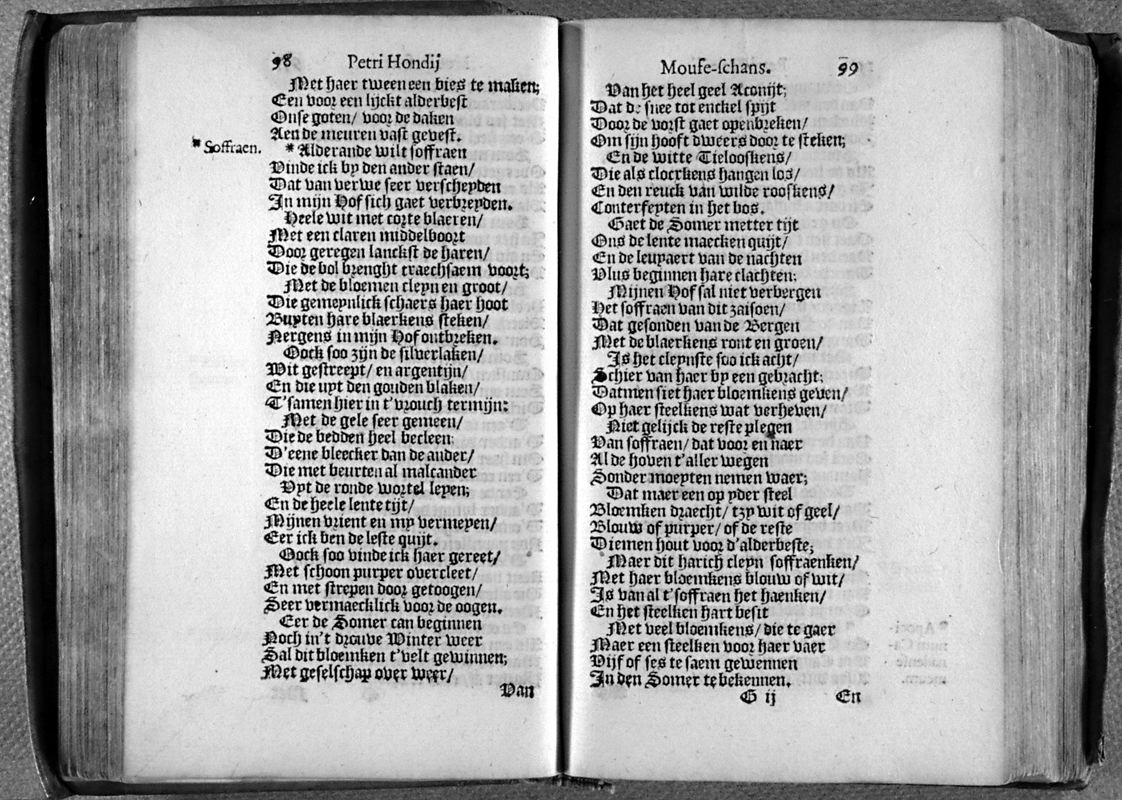 98 Petri Hondij
Met haer tween een bies te maken;
Een voor een lijckt alderbest
Onse goten/ voor de daken
Aen de meuren vast gevest.
* Soffraen.
* Alderande wilt soffraen
Vinde ick by den ander staen/
Dat van verwe seer verscheyden
In mijn Hof sich gaet verbreyden.
Heele wit met corte blaeren/
Met een claren middelboort
Door geregen lanckst de haren/
Die de bol brenght traechsaem voort;
Met de bloemen cleyn en groot/
Die gemeynlick schaers haer hoot
Buyten hare blaerkens steken/
Nergens in mijn Hof outbreken.
Oock soo zijn de silverlaken/
Wit gestreept/ en argentijn/
En die uyt den gouden blaken/
T'samen hier in t'vrouch termijn:
Met de gele seer gemeen/
Die de bedden heel becleen:
D'eene bleecker dan de ander/
Die met beurten al malcander
Uyt de ronde wortel leyen;
En de heele lente tijt/
Mijnen vrient en my vermeyen/
Eer ick ben de leste quijt.
Oock soo vinde ick haer gereet/
Met schoon purper overcleet/
En met strepen door getoogen/
Seer vermaecklick voor de oogen.
Eer de Somer can beginnen
Noch in't drouve Winter weer
Sal dit bloemken t'velt gewinnen;
Met geselschap over weer/
Van
Mouse-schans. 99
Van het heel geel Aconijt;
Dat de snee tot enckel spijt
Door de vorst gaet openbreken/
Om sijn hooft dweers door te steken;
En de witte Tielooskens/
Die als clockens hangen los/
En den reuck van wilde rooskens/
Conterfeyten in het bos.
Gaet de Somer metter tijt
Ons de lente maecken quijt/
En de leupaert van de nachten
Vlus beginnen hare clachten:
Mijnen Hof sal niet verbergen
Het soffraen van dit zaisoen/
Dat gesonden van de Bergen
Met de blaerkens ront en groen/
Is het cleynste soo ick acht/
Schier van haer by een gebracht:
Datmen siet haer bloemkens geven/
Op haer steelkens wat verheven/
Niet gelijck de reste plegen
Van soffraen/ dat voor en naer
Al de hoven t'aller wegen
Sonder moeyten nemen waer;
Dat maer een op yder steel
Bloemken draecht/ tzy wit of geel/
Blouw of purper/ of de reste
Diemen hout voor d'alderbeste;
Maer dit harich cleyn soffraenken/
Met haer bloemkens blouw of wit/
Is van al t'soffraen het haenken/
En het steelken hart besit
Met veel bloemkens/ die te gaer
Maer een steelken voor haer vaer
Vijf of ses te saem gewennen
In den Somer te bekennen.
G ij En